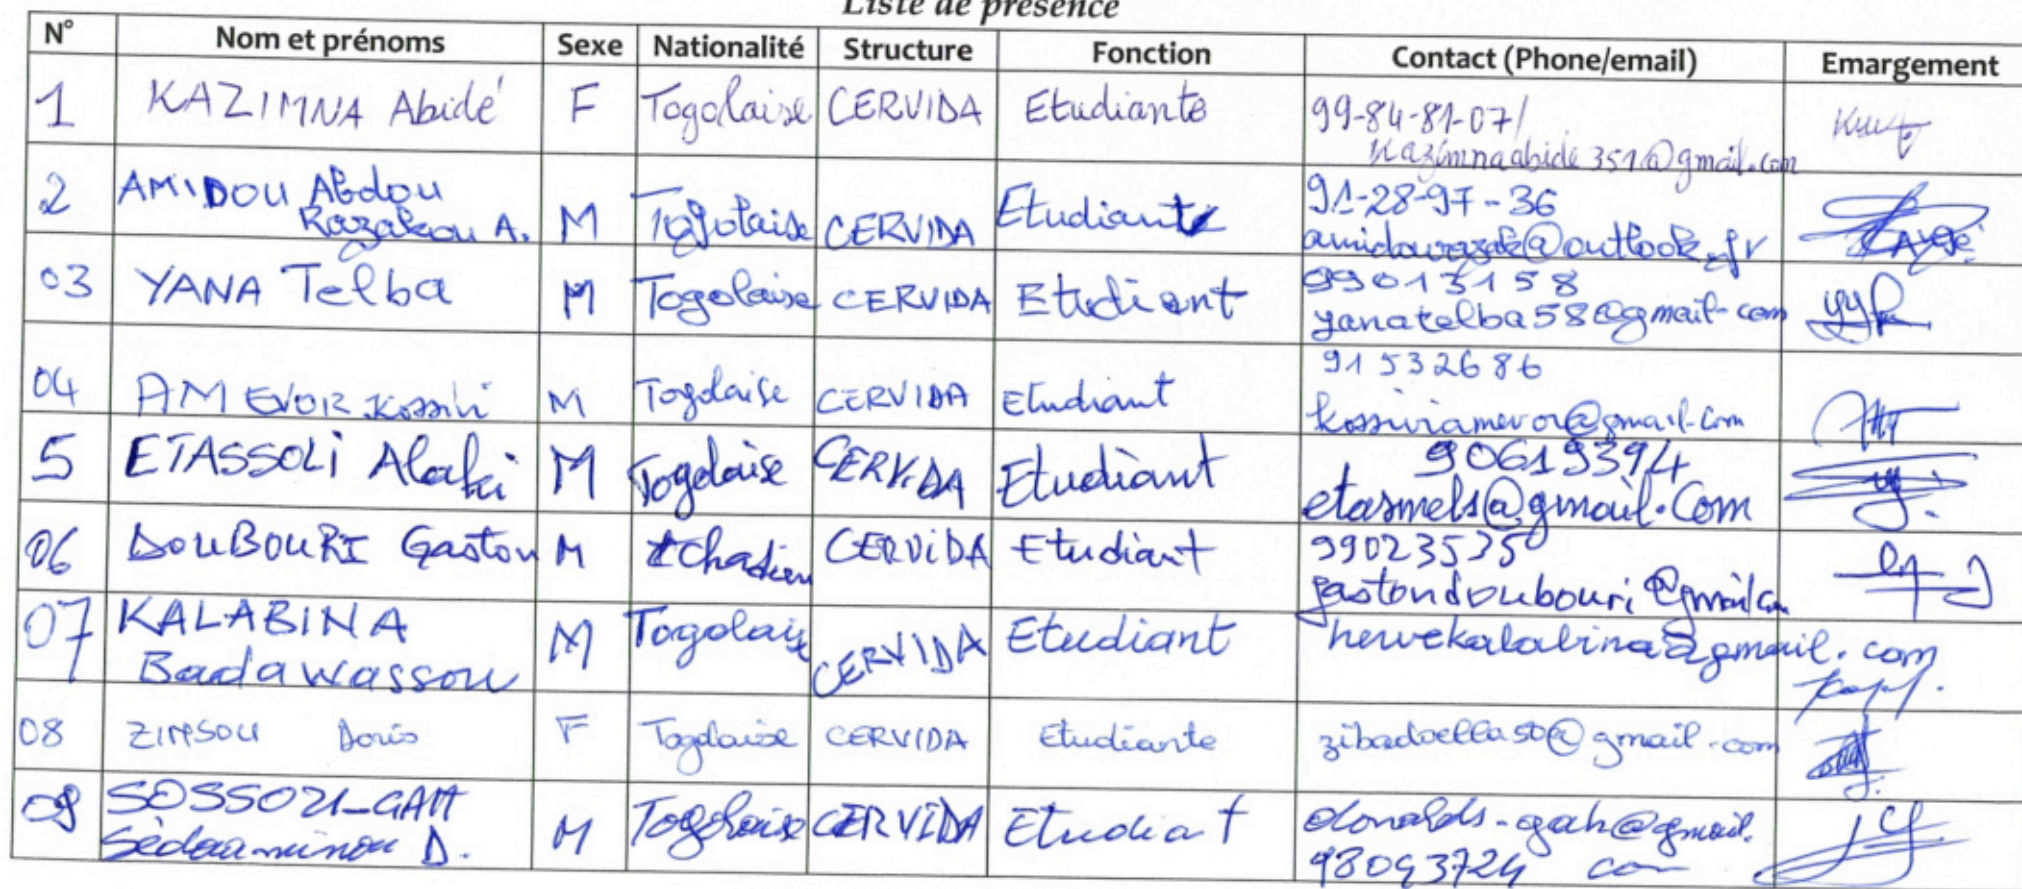 Liste de présence
N° Nom et prénoms Sexe Nationalité Structure Fonction Contact (Phone/email) Emargement
1 KAZIMNA Abidé F Togolaise CERVIDA Etudiante 99-84-81-07/
kazimnaabide351@gmail.com
2 AMIDOU Abdou M Togolaise CERVIDA Etudiant 91-28-97-36
Razakou A. amidourazak@outlook.fr
03 YANA Telba M Togolaise CERVIDA Etudiant 99013158
yanatelba58@gmail-com
04 AMEVOR Kossivi M Togolaise CERVIDA Etudiant 91532686
kossiviamevor@gmail-com
5 ETASSOLI Alaki M Togolaise CERVIDA Etudiant 90619394
etasmels@gmail.Com
06 DOUBOURI Gaston M tchadien CERVIDA Etudiant 99023535
gastondoubouri@gmail.com
07 KALABINA M Togolaise CERVIDA Etudiant hervekalabina@gmail.com
Badawassou
08 ZINSOU Doris F Togolaise CERVIDA Etudiante zibadoella50@gmail.com
09 SOSSOU-GAH M Togolaise CERVIDA Etudiat donalds-gah@gmail.
Sèdaaminou D. 98093724 com